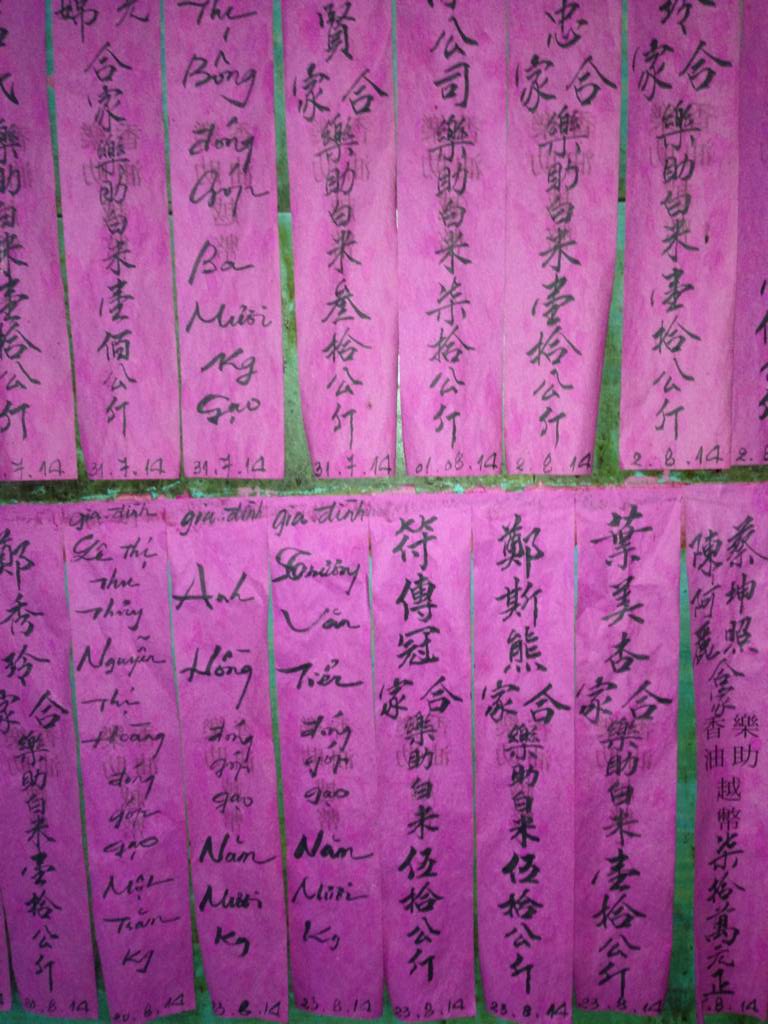 樂助白米壹拾公斤
7.14
合家樂助白米壹佰公斤
31.7.14
Thị
Bông
đóng
góp
Ba
Mươi
Kg
Gạo
31.7.14
賢
合家
樂助白米叁拾公斤
31.7.14
公司樂助白米柒拾公斤
01.08.14
忠
合家
樂助白米壹拾公斤
2.8.14
玲
合家
樂助白米壹拾公斤
2.8.14
鄭秀玲
合家
樂助白米壹拾公斤
20.8.14
gia đình
Lê thị
Thu
Thủy
Nguyễn
Thị
Hoàng
đóng
góp
gạo
Một
Trăm
Kg
20.8.14
gia đình
Anh
Hồng
đóng
góp
gạo
Năm
Mươi
Kg
23.8.14
gia đình
Văn
Tiến
đóng
góp
gạo
Năm
Mươi
Kg
23.8.14
符傳冠
合家
樂助白米伍拾公斤
23.8.14
鄭斯熊
合家
樂助白米伍拾公斤
23.8.14
葉美杏
合家
樂助白米壹拾公斤
23.8.14
蔡坤照
陳阿麗
合家
樂助
香油
越幣柒拾萬元正
.8.14